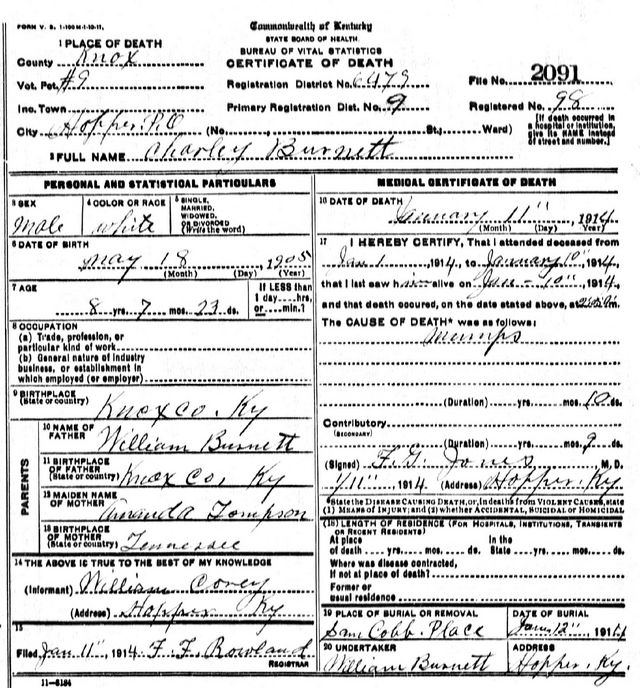 FORM V. S. 1-100M-1-10-11.
Commonwealth of Kentucky
STATE BOARD OF HEALTH.
BUREAU OF VITAL STATISTICS
CERTIFICATE OF DEATH
1 PLACE OF DEATH
County Knox
Vot. Pct. #9
Inc. Town
City Hopper P.O (No. St.; Ward)
Registration District No. 6479
Primary Registration Dist. No. 9
File No. 2091
Registered No. 98
[If death occurred in a hospital or institution, give its NAME instead of street and number.]
2 FULL NAME Charley Burnett
PERSONAL AND STATISTICAL PARTICULARS
3 SEX
Male
4 COLOR OR RACE
white
5 SINGLE,
MARRIED,
WIDOWED,
OR DIVORCED
(Write the word)
6 DATE OF BIRTH
May 18 1905
(Month) (Day) (Year)
7 AGE
8 yrs. 7 mos. 23 ds.
If LESS than
1 day....hrs,
or....min.?
8 OCCUPATION
(a) Trade, profession, or
particular kind of work
(b) General nature of industry
business, or establishment in
which employed (or employer)
9 BIRTHPLACE
(State or country)
Knox co. Ky
PARENTS
10 NAME OF
FATHER
William Burnett
11 BIRTHPLACE
OF FATHER
(State or country)
Knox co, Ky
12 MAIDEN NAME
OF MOTHER
Amanda Tompson
13 BIRTHPLACE
OF MOTHER
(State or country)
Tennessee
14 THE ABOVE IS TRUE TO THE BEST OF MY KNOWLEDGE
(Informant) William
(Address) Hopper Ky
15
Filed Jan 11" 1914 F. F. Rowland
REGISTRAR
11-6184
MEDICAL CERTIFICATE OF DEATH
16 DATE OF DEATH
January 11" 1914
(Month) (Day) (Year)
17 I HEREBY CERTIFY, That I attended deceased from
Jan 1 1914, to January 10" 1914,
that I last saw him alive on Jan - 10" 1914,
and that death occurred, on the date stated above, at
The CAUSE OF DEATH* was as follows:
Mumps
(Duration) yrs. mos. 10 ds.
Contributory
(SECONDARY)
(Duration) yrs. mos. 9 ds.
(Signed) F. G. Jones M. D.
1/11" 1914 (Address) Hopper, Ky.
*State the DISEASE CAUSING DEATH, or, in deaths from VIOLENT CAUSES, state
(1) MEANS OF INJURY; and (2) whether ACCIDENTAL, SUICIDAL or HOMICIDAL
(18) LENGTH OF RESIDENCE (FOR HOSPITALS, INSTITUTIONS, TRANSIENTS
OR RECENT RESIDENTS)
At place In the
of death yrs. mos. ds. State yrs. mos. ds.
Where was disease contracted,
If not at place of death?
Former or
usual residence
19 PLACE OF BURIAL OR REMOVAL
Sam Cobb Place
DATE OF BURIAL
Jan 12" 1914
20 UNDERTAKER
William Burnett
ADDRESS
Hopper, Ky.